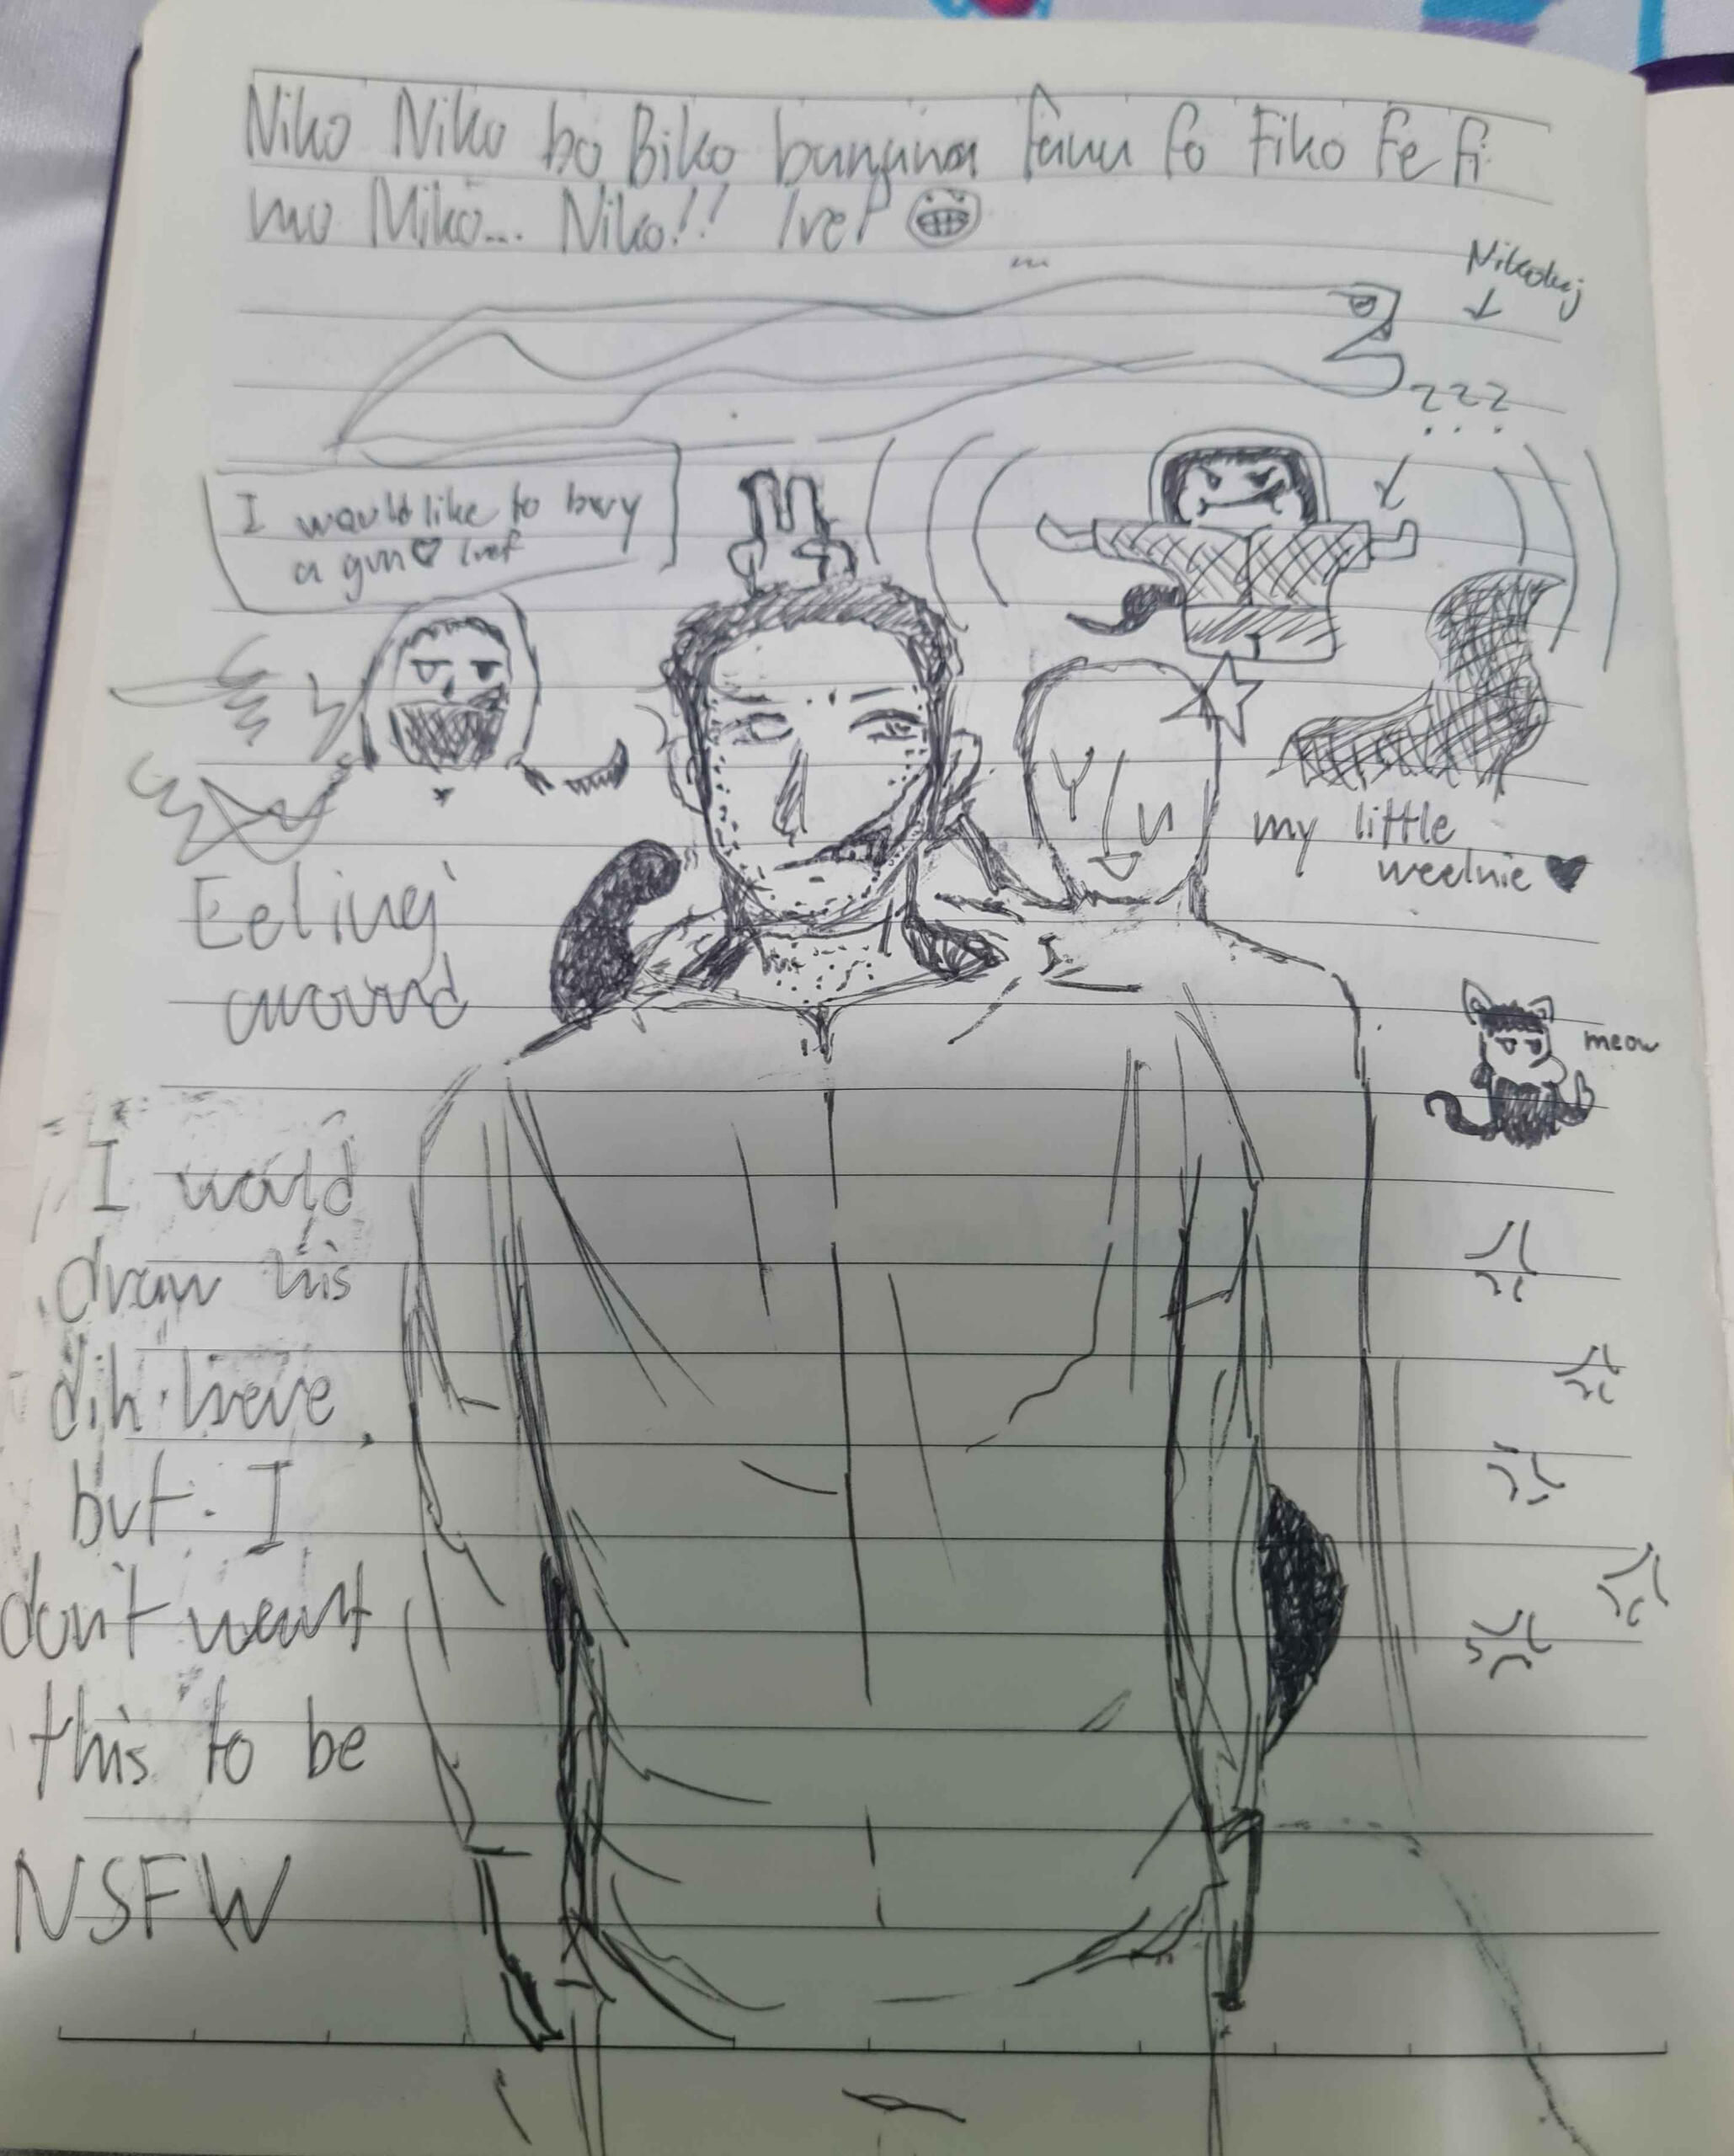 Niko Niko bo Biko bananna fana fo Fiko Fe fi
mo Miko... Niko!! lref
...
Nikolaj
???
I would like to buy
a gun♡ lref
my little
weelnie ♥
Eeling'
around
meow
I would
draw his
dih here
but I
don't want
this to be
NSFW